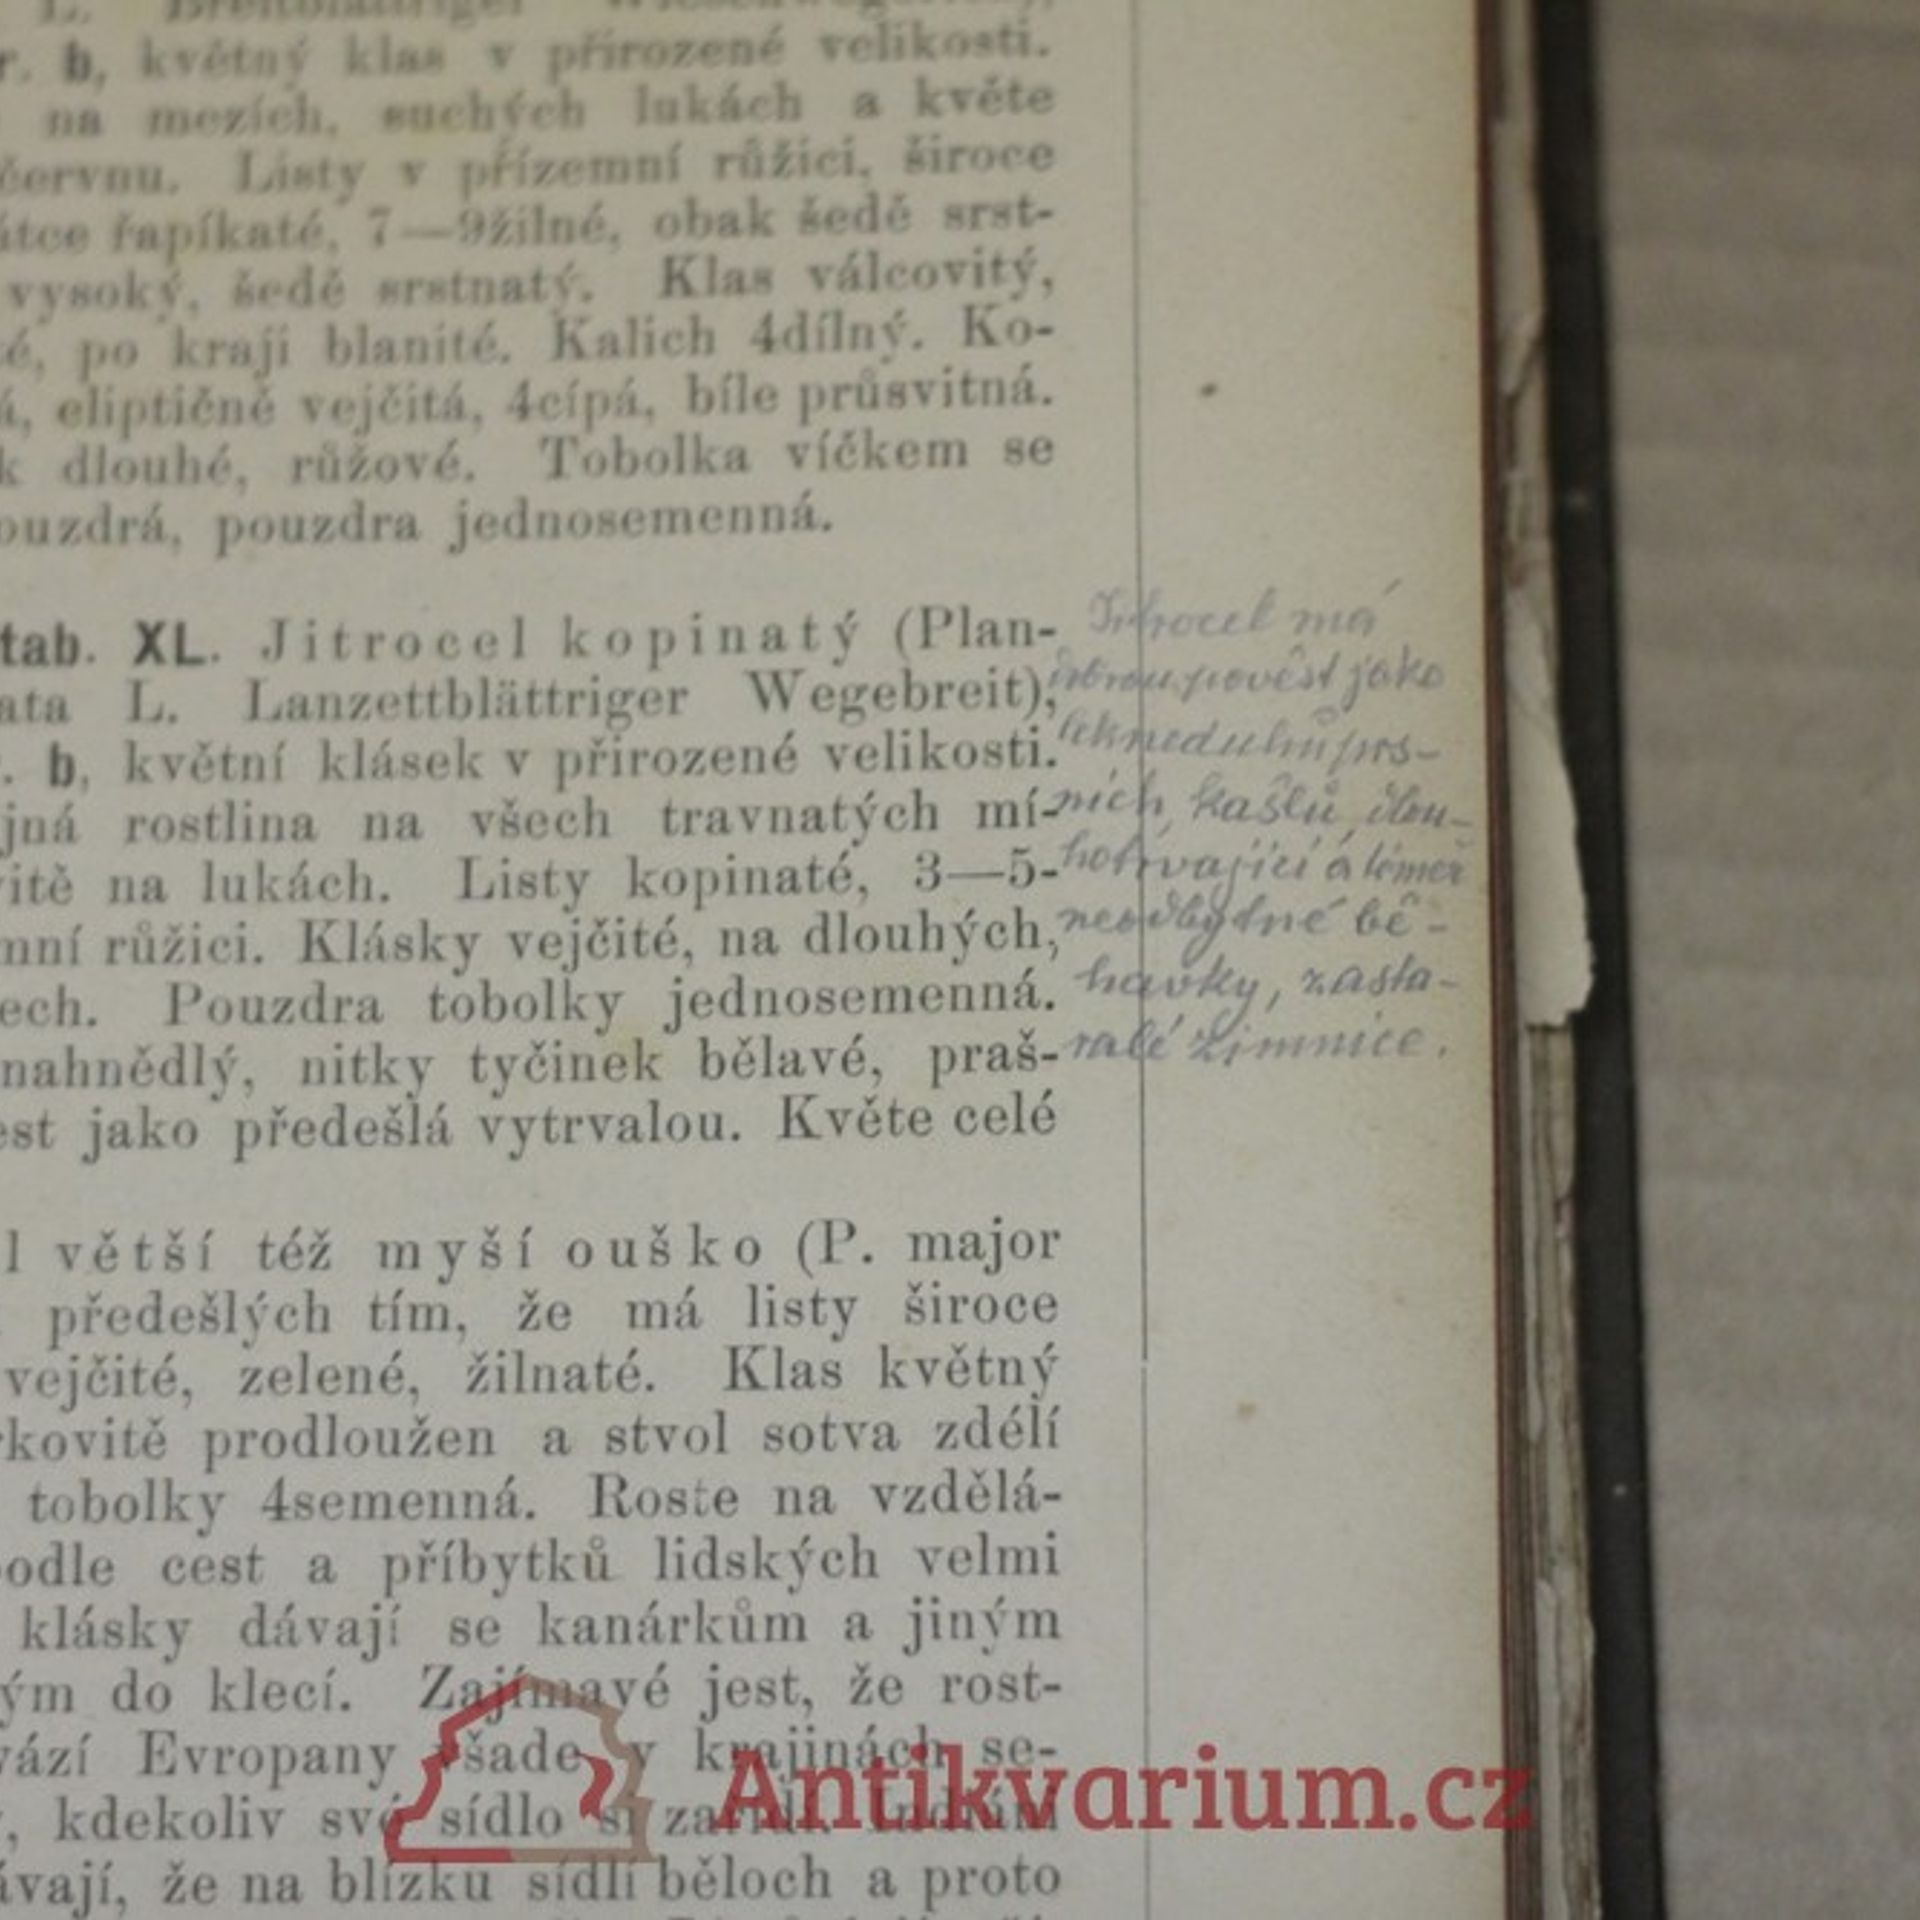 L. Breitblättriger
r. b, květný klas v přirozené velikosti.
na mezích, suchých lukách a květe
červnu. Listy v přízemní růžici, široce
átce řapíkaté, 7—9žilné, obak šedě srst-
vysoký, šedě srstnatý. Klas válcovitý,
é, po kraji blanité. Kalich 4dílný. Ko-
á, eliptičně vejčitá, 4cípá, bíle průsvitná.
k dlouhé, růžové. Tobolka víčkem se
ouzdrá, pouzdra jednosemenná.
tab. XL. Jitrocel kopinatý (Plan-
ata L. Lanzettblättriger Wegebreit),
. b, květní klásek v přirozené velikosti.
jná rostlina na všech travnatých mí-
itě na lukách. Listy kopinaté, 3—5-
mní růžici. Klásky vejčité, na dlouhých,
ech. Pouzdra tobolky jednosemenná.
nahnědlý, nitky tyčinek bělavé, praš-
est jako předešlá vytrvalou. Květe celé
l větší též myší ouško (P. major
předešlých tím, že má listy široce
vejčité, zelené, žilnaté. Klas květný
rkovitě prodloužen a stvol sotva zdélí
tobolky 4semenná. Roste na vzdělá-
podle cest a příbytků lidských velmi
klásky dávají se kanárkům a jiným
ým do klecí. Zajímavé jest, že rost-
vází Evropany všade v krajinách se-
, kdekoliv své sídlo si zařídí. Indiáni
ávají, že na blízku sídlí běloch a proto
Jitrocel má
dobrou pověst jako
lek neduhů prs-
ních, kašlů, dlou-
hotrvající a téměř
neodbytné bě-
havky, zasta-
ralé zimnice.
Antikvarium.cz